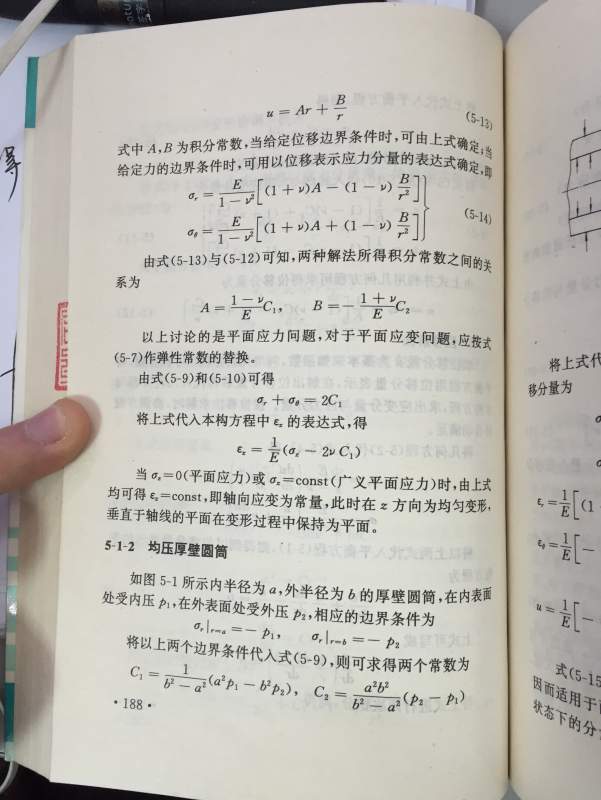 u = Ar + B/r (5-13)
式中 A,B 为积分常数,当给定位移边界条件时,可由上式确定;当
给定力的边界条件时,可用以位移表示应力分量的表达式确定,即
σᵣ = E/(1-ν²) [(1+ν)A - (1-ν) B/r²]
σ_θ = E/(1-ν²) [(1+ν)A + (1-ν) B/r²] } (5-14)
由式(5-13)与(5-12)可知,两种解法所得积分常数之间的关
系为
A = (1-ν)/E C₁, B = - (1+ν)/E C₂
以上讨论的是平面应力问题,对于平面应变问题,应按式
(5-7)作弹性常数的替换。
由式(5-9)和(5-10)可得
σᵣ + σ_θ = 2C₁
将上式代入本构方程中 ε_z 的表达式,得
ε_z = 1/E (σ_z - 2ν C₁)
当 σ_z=0(平面应力)或 σ_z=const(广义平面应力)时,由上式
均可得 ε_z=const,即轴向应变为常量,此时在 z 方向为均匀变形,
垂直于轴线的平面在变形过程中保持为平面。
5-1-2 均压厚壁圆筒
如图 5-1 所示内半径为 a,外半径为 b 的厚壁圆筒,在内表面
处受内压 p₁,在外表面处受外压 p₂,相应的边界条件为
σᵣ|r=a = - p₁, σᵣ|r=b = - p₂
将以上两个边界条件代入式(5-9),则可求得两个常数为
C₁ = 1/(b²-a²) (a²p₁ - b²p₂), C₂ = a²b²/(b²-a²) (p₂ - p₁)
· 188 ·
将上式代
移分量为
εᵣ = 1/E [(1
ε_θ = 1/E [-
u = 1/E [-
式(5-15
因而适用于
状态下的分